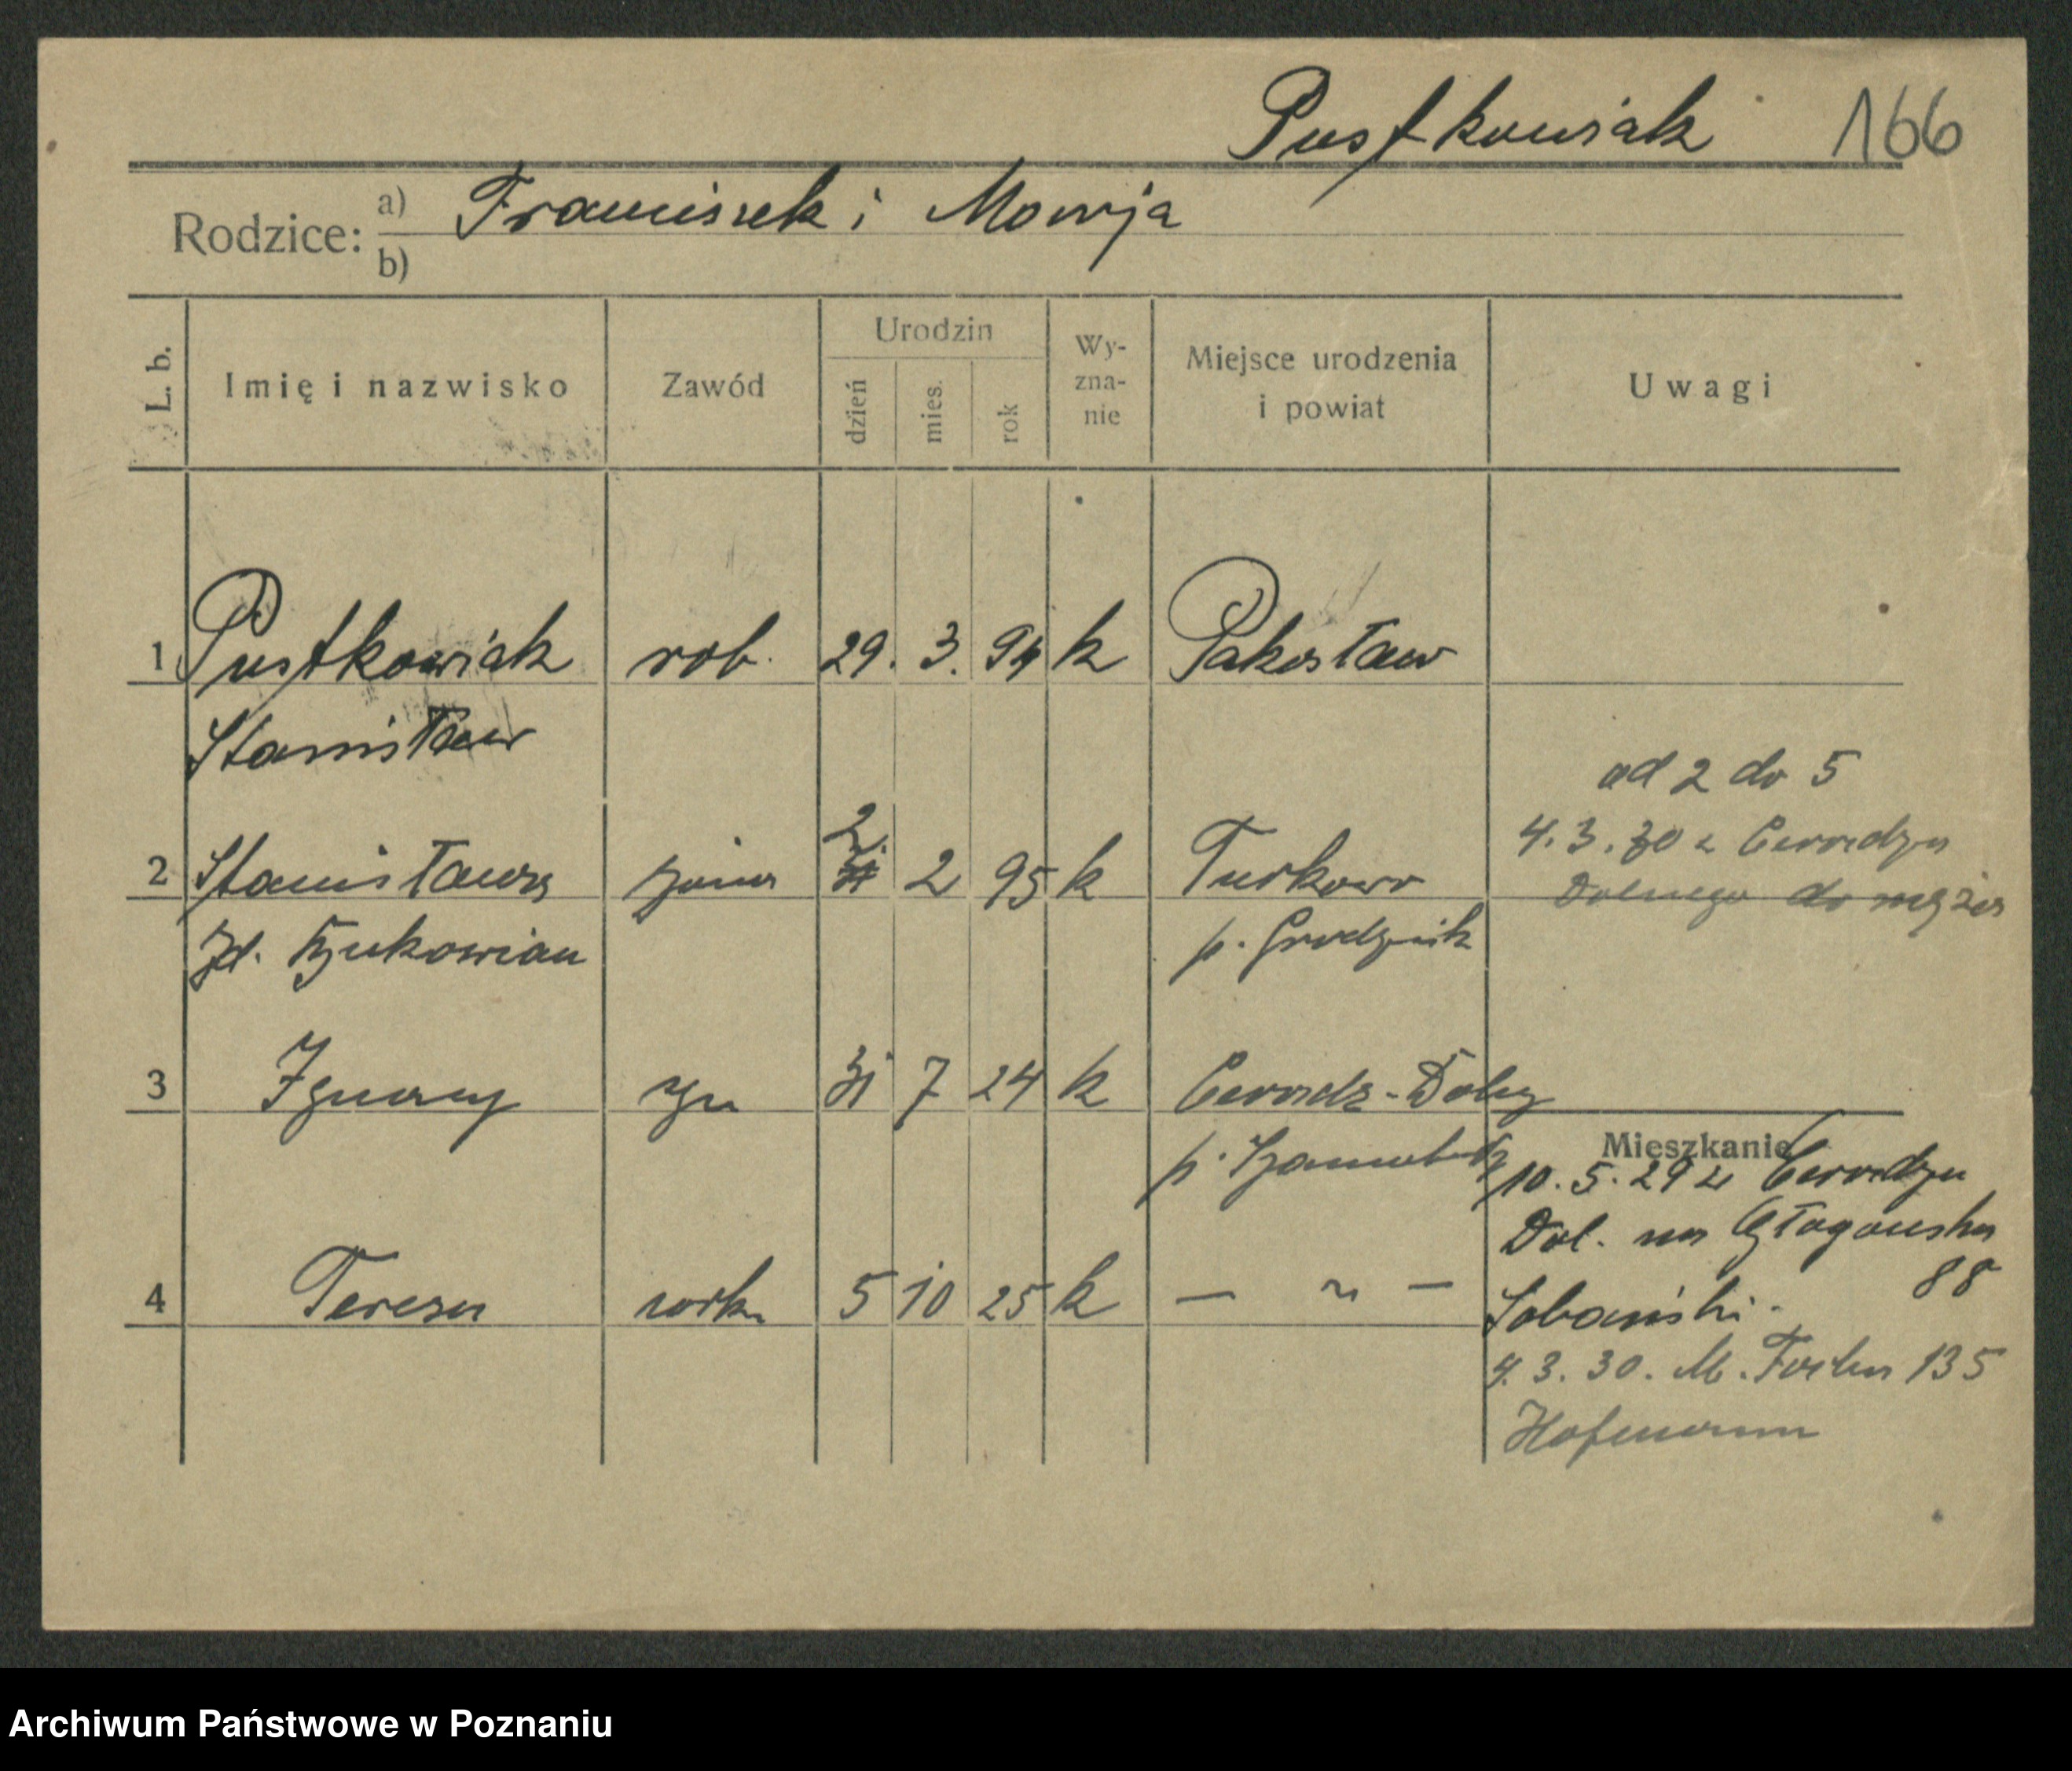 Pustkowiak 166
Rodzice: a) Franciszek i Marja
b)
L. b. Imię i nazwisko Zawód Urodzin dzień mies. rok Wy-zna-nie Miejsce urodzenia i powiat Uwagi
1 Pustkowiak rob. 29. 3. 94 k Pakosław
Stanisław
od 2 do 5
4.3.30 z Cerardzu
2 Stanisława żona 2 2 95 k Turkowo Dolnego do męża
p. Grodzisk
3 Ignacy syn 31 7 24 k Ceradz-Dolny
p. Szamotuły
Mieszkanie
10.5.29 z Ceradzu
Dol. na Głogowska
88
4 Teresa córka 5 10 25 k — " —
Sobański.
4.3.30. M. Focha 135
Hofmann
Archiwum Państwowe w Poznaniu